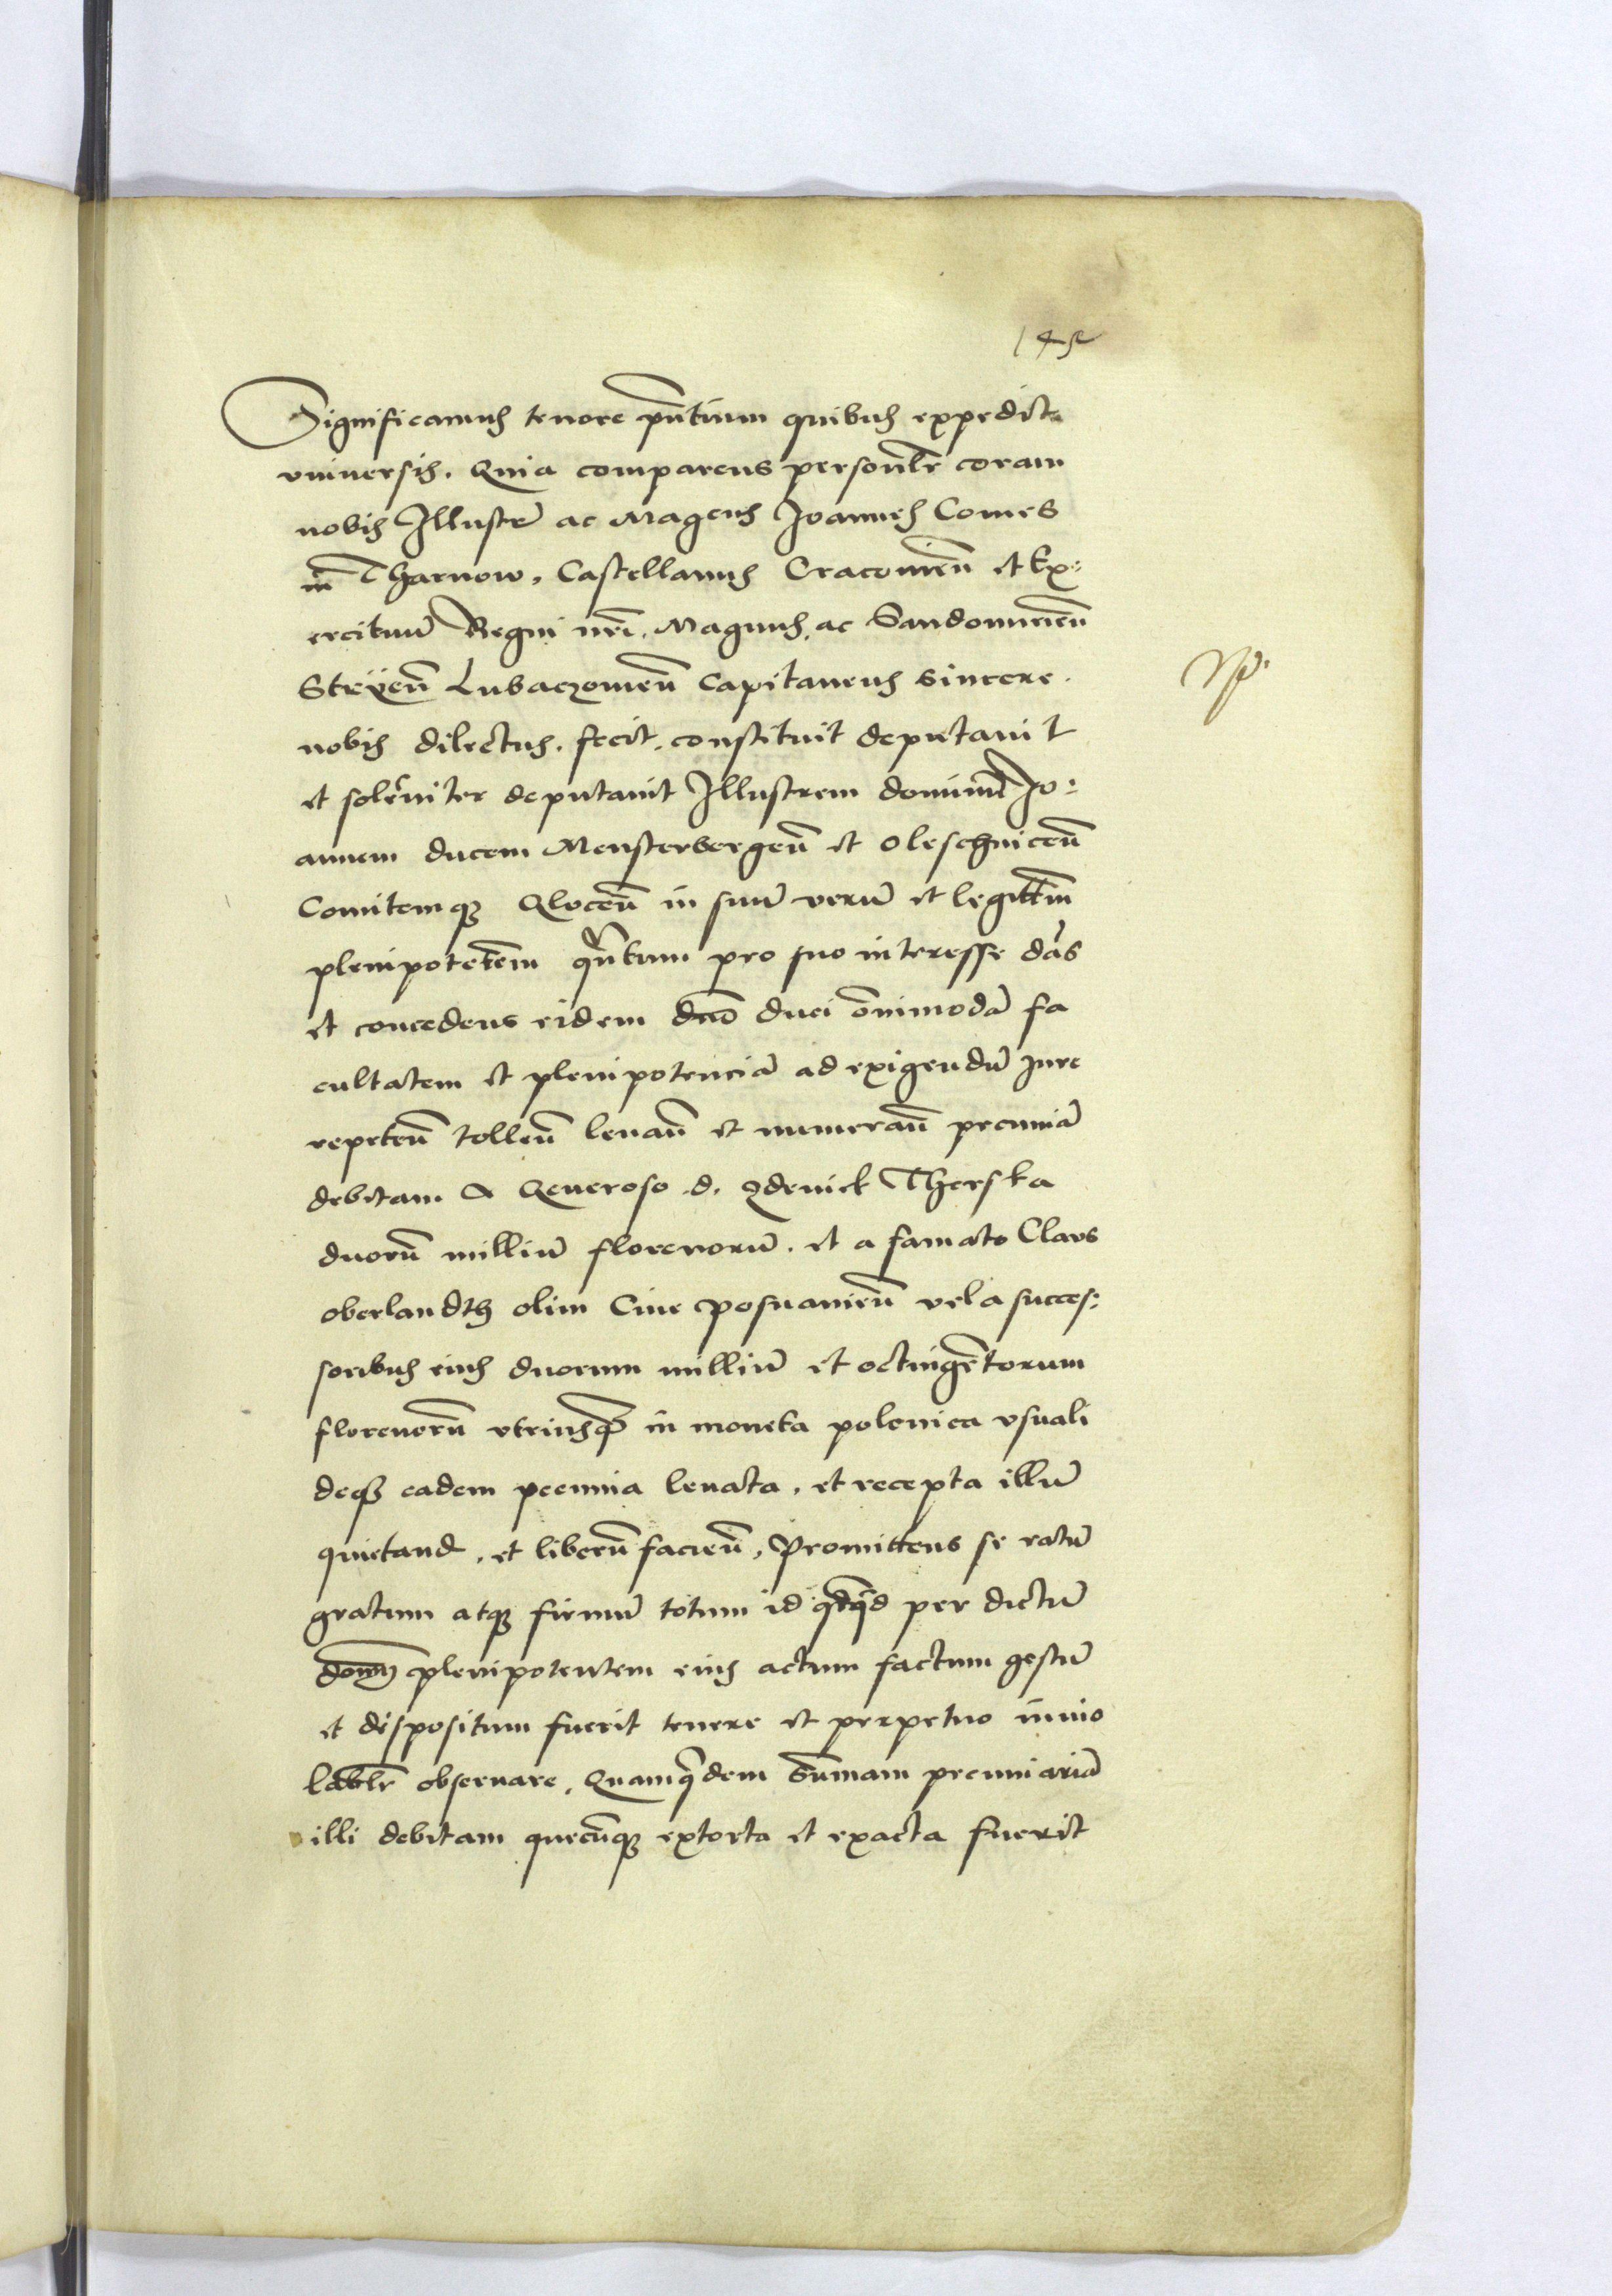 Significamus tenore pn̄tium quibus expedit
vniversis. Quia comparens personlr̄ coram
nobis Illustr̄ ac Magcus Joannes Comes
in Tharnow, Castellanus Cracovien̄ et Ex=
ercituū Regni nr̄i. Magnus, ac Sandomirien̄
Stryen̄ Lubaczovien̄ Capitaneus sincere.
nobis dilectus. fecit. constituit deputavit
et solēniter deputavit Illustrem dominū Jo=
annem ducem Mensterbergen̄ et Oleschnicen̄
Comitemqȝ Glocen̄ in suū verū et legittīm
plenipotētem qn̄tum pro suo interesse dās
et concedens eidem dn̄o duci ōnimodā fa
cultatem et plenipotenciā ad exigendū Jure
repeten̄ tollen̄ levan̄ et numeran̄ pecuniā
debitam A Generoso .d. Zdenick Therska
duorū milliū florenorū. et a famato Claos
oberlandth olim Cive posnanien̄ vel a succes=
soribus eius duorum milliū et octingētorum
florenorū vtriusqȝ in moneta polonica vsuali
deqȝ eadem pecunia levata, et recepta illū
quietand, et liberū facien̄, Promittens se ratū
gratum atqȝ firmū totum id qdqd per dictū
plenipotentem eius actum factum gestū
et dispositum fuerit tenere et perpetuo invio
lablr̄ observare, Quamqdem Sūmam pecuniariā
illi debitam quecūqȝ extorta et exacta fuerit